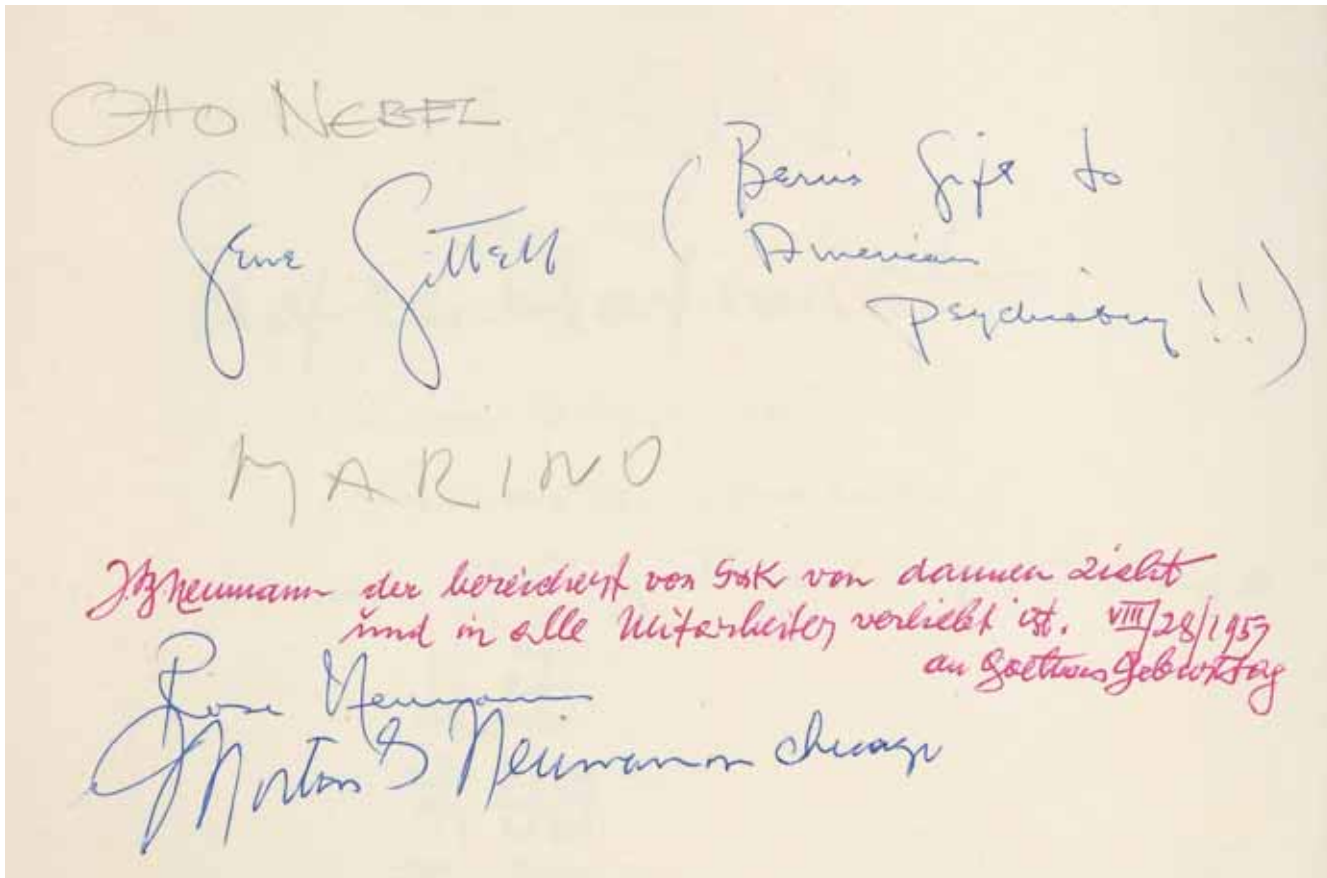 OTTO NEBEL
Gene Gittell
(Bern's Gift to
American
psychiatry!!)
MARINO
JB Neumann der bereichert von von dannen zieht
und in alle Mitarbeiter verliebt ist. VIII/28/1957
an Goethes Geburtstag
Rose Neumann
Morton G Neumann Chicago